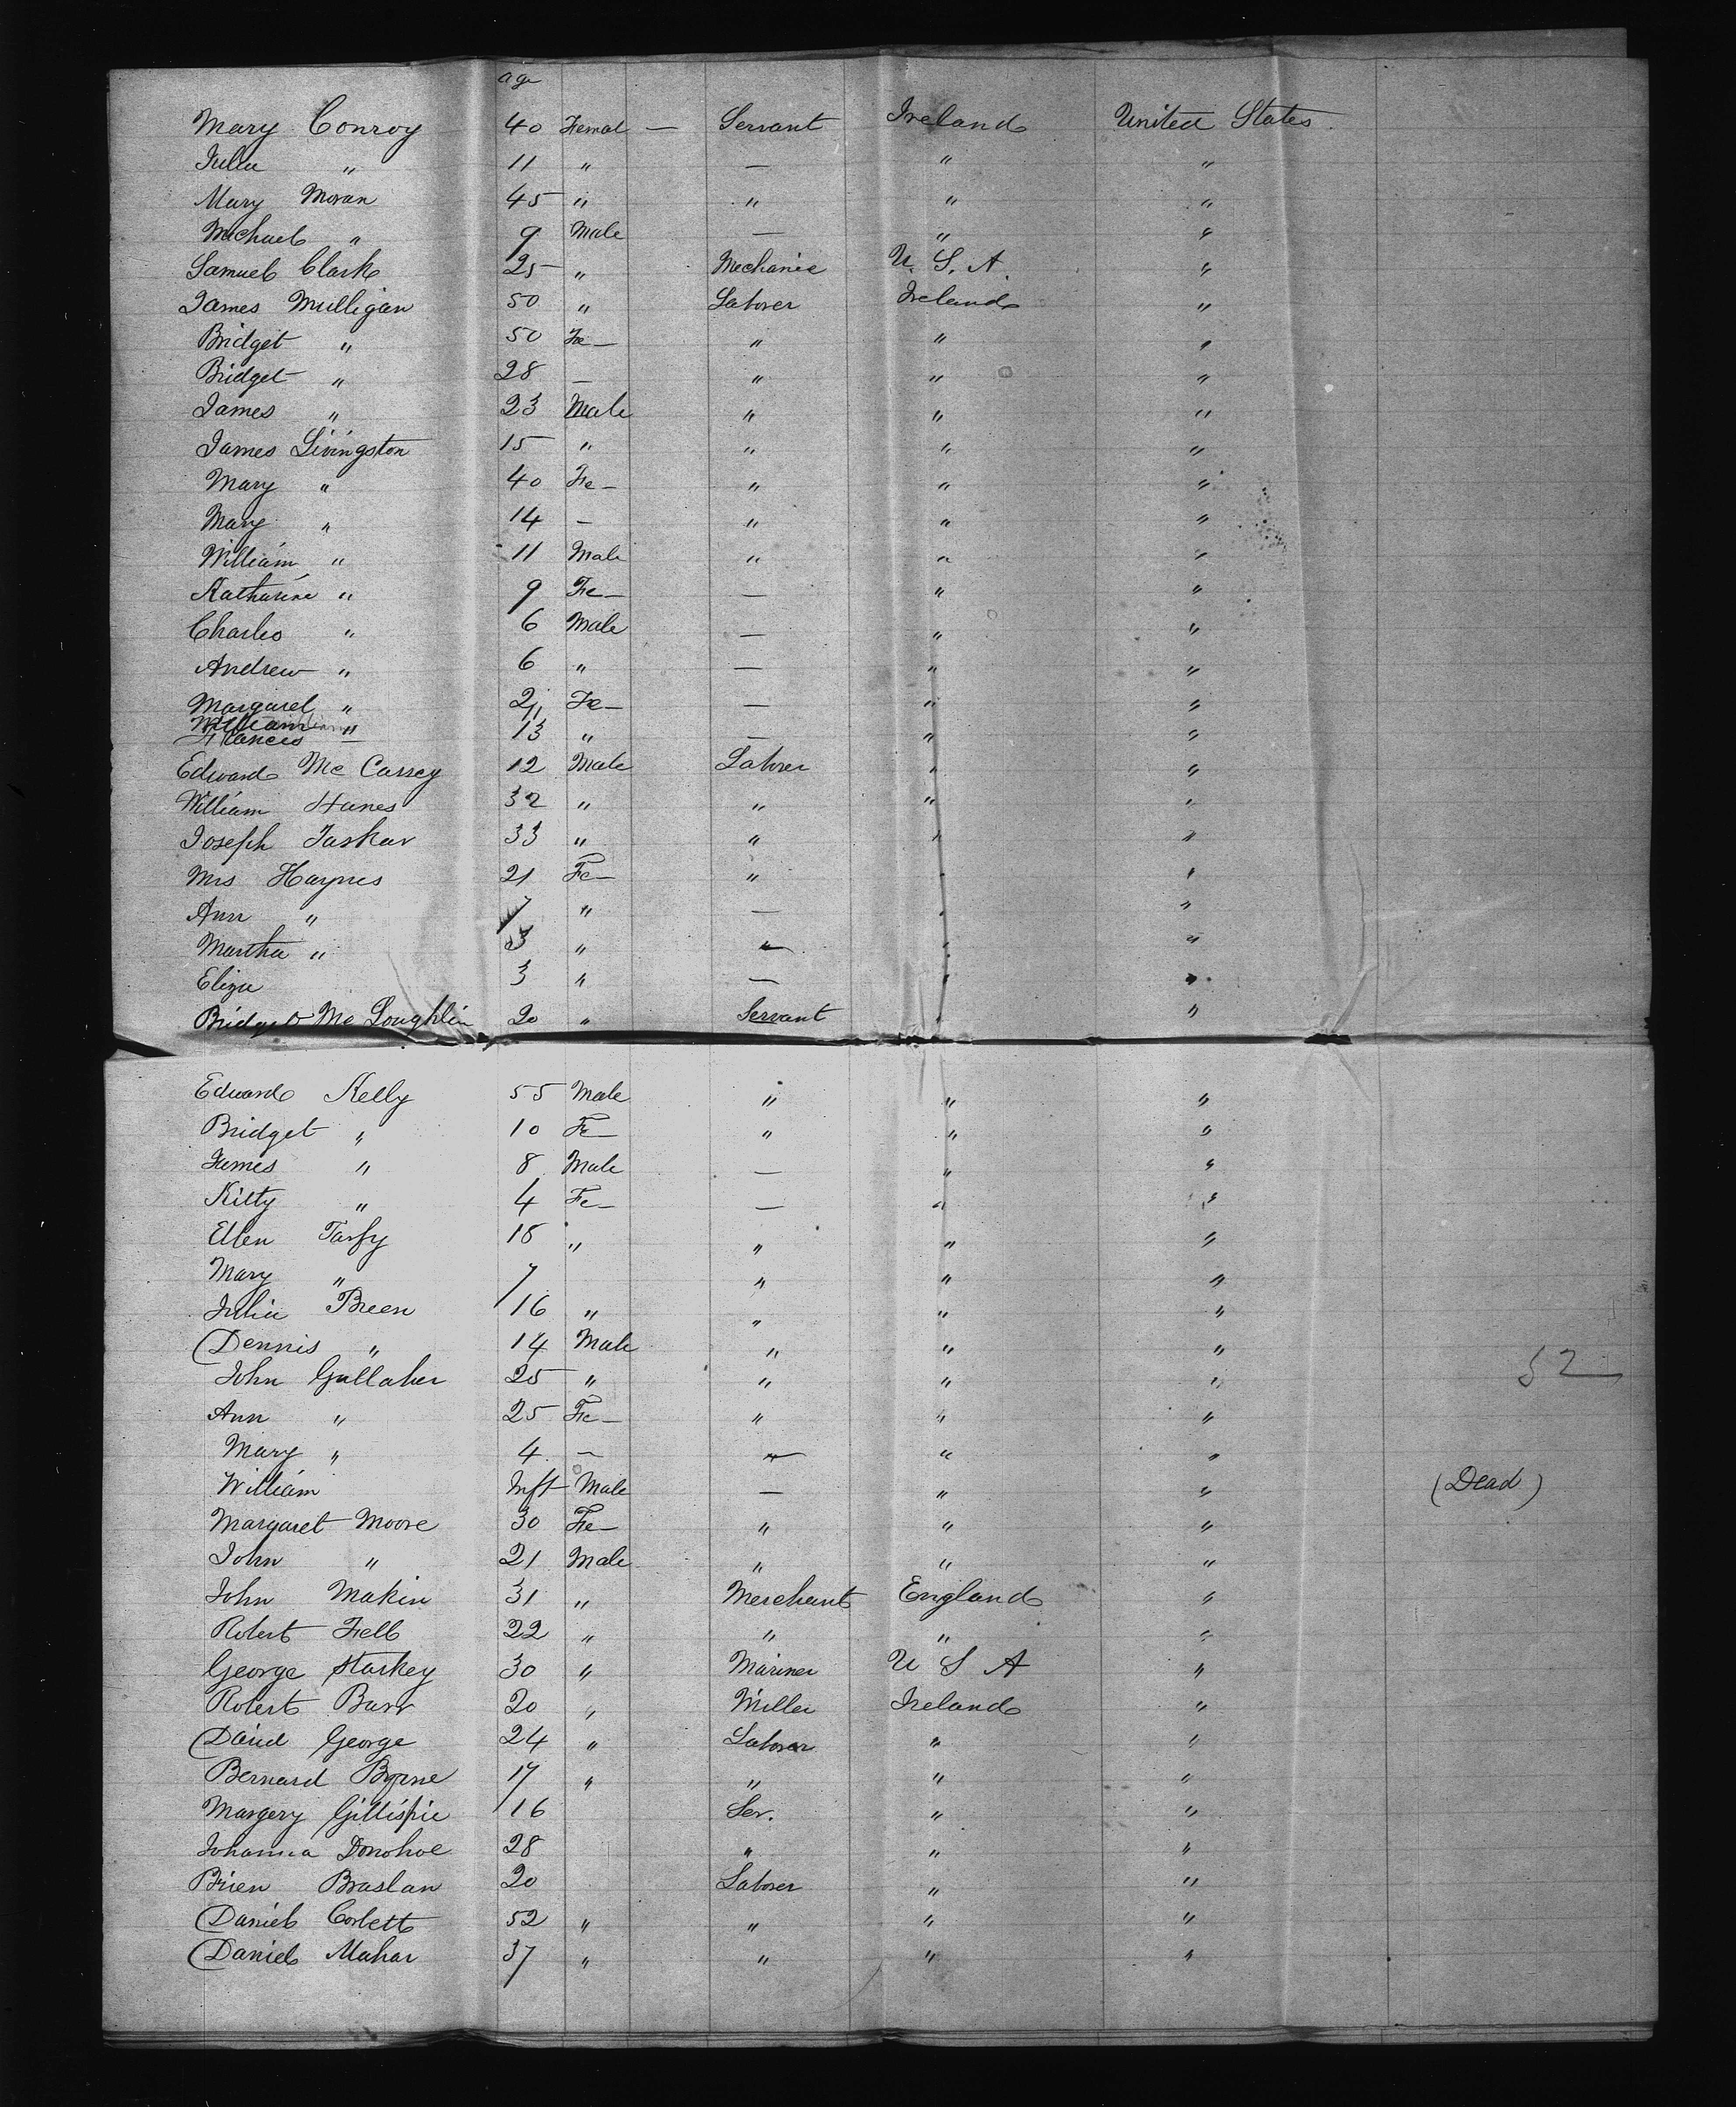 age
Mary Conroy 40 Femal — Servant Ireland United States
Julia " 11 " — " "
Mary Moran 45 " " " "
Michael " 9 Male — " "
Samuel Clark 25 " Mechanic U. S. A. "
James Mulligan 50 " Laborer Ireland "
Bridget " 50 Fe— " " "
Bridget " 28 — " " "
James " 23 Male " " "
James Livingston 15 " " " "
Mary " 40 Fe— " " "
Mary " 14 — " " "
William " 11 Male " " "
Katharine " 9 Fe— — " "
Charles " 6 Male — " "
Andrew " 6 " — " "
Margaret " 2 Fe— — " "
William "
Frances — 13 " — " "
Edward Mc Cassey 12 Male Laborer " "
William Hanes 32 " " " "
Joseph Taskar 33 " " " "
Mrs Haynes 21 Fe— " " "
Ann " 7 " — " "
Martha " 5 " — " "
Eliza 3 " — " "
Bridget Mc Loughlin 20 " Servant " "
Edward Kelly 55 Male " " "
Bridget " 10 Fe— " " "
James " 8 Male — " "
Kitty " 4 Fe— — " "
Ellen Tarfy 18 " " " "
Mary " 7 " " "
Julia Breen 16 " " " "
Dennis " 14 Male " " "
John Gallaher 25 " " " "
52
Ann " 25 Fe— " " "
Mary " 4 — — " "
William Inft Male — " " (Dead)
Margaret Moore 30 Fe— " " "
John " 21 Male " " "
John Makin 31 " Merchant England "
Robert Fell 22 " " " "
George Starkey 30 " Mariner U S A "
Robert Barr 20 " Miller Ireland "
David George 24 " Laborer " "
Bernard Byrne 17 " " " "
Margery Gillispie 16 Ser. " "
Johanna Donohoe 28 " " "
Brien Braslan 20 Laborer " "
Daniel Corbett 52 " " " "
Daniel Mahar 37 " " " "